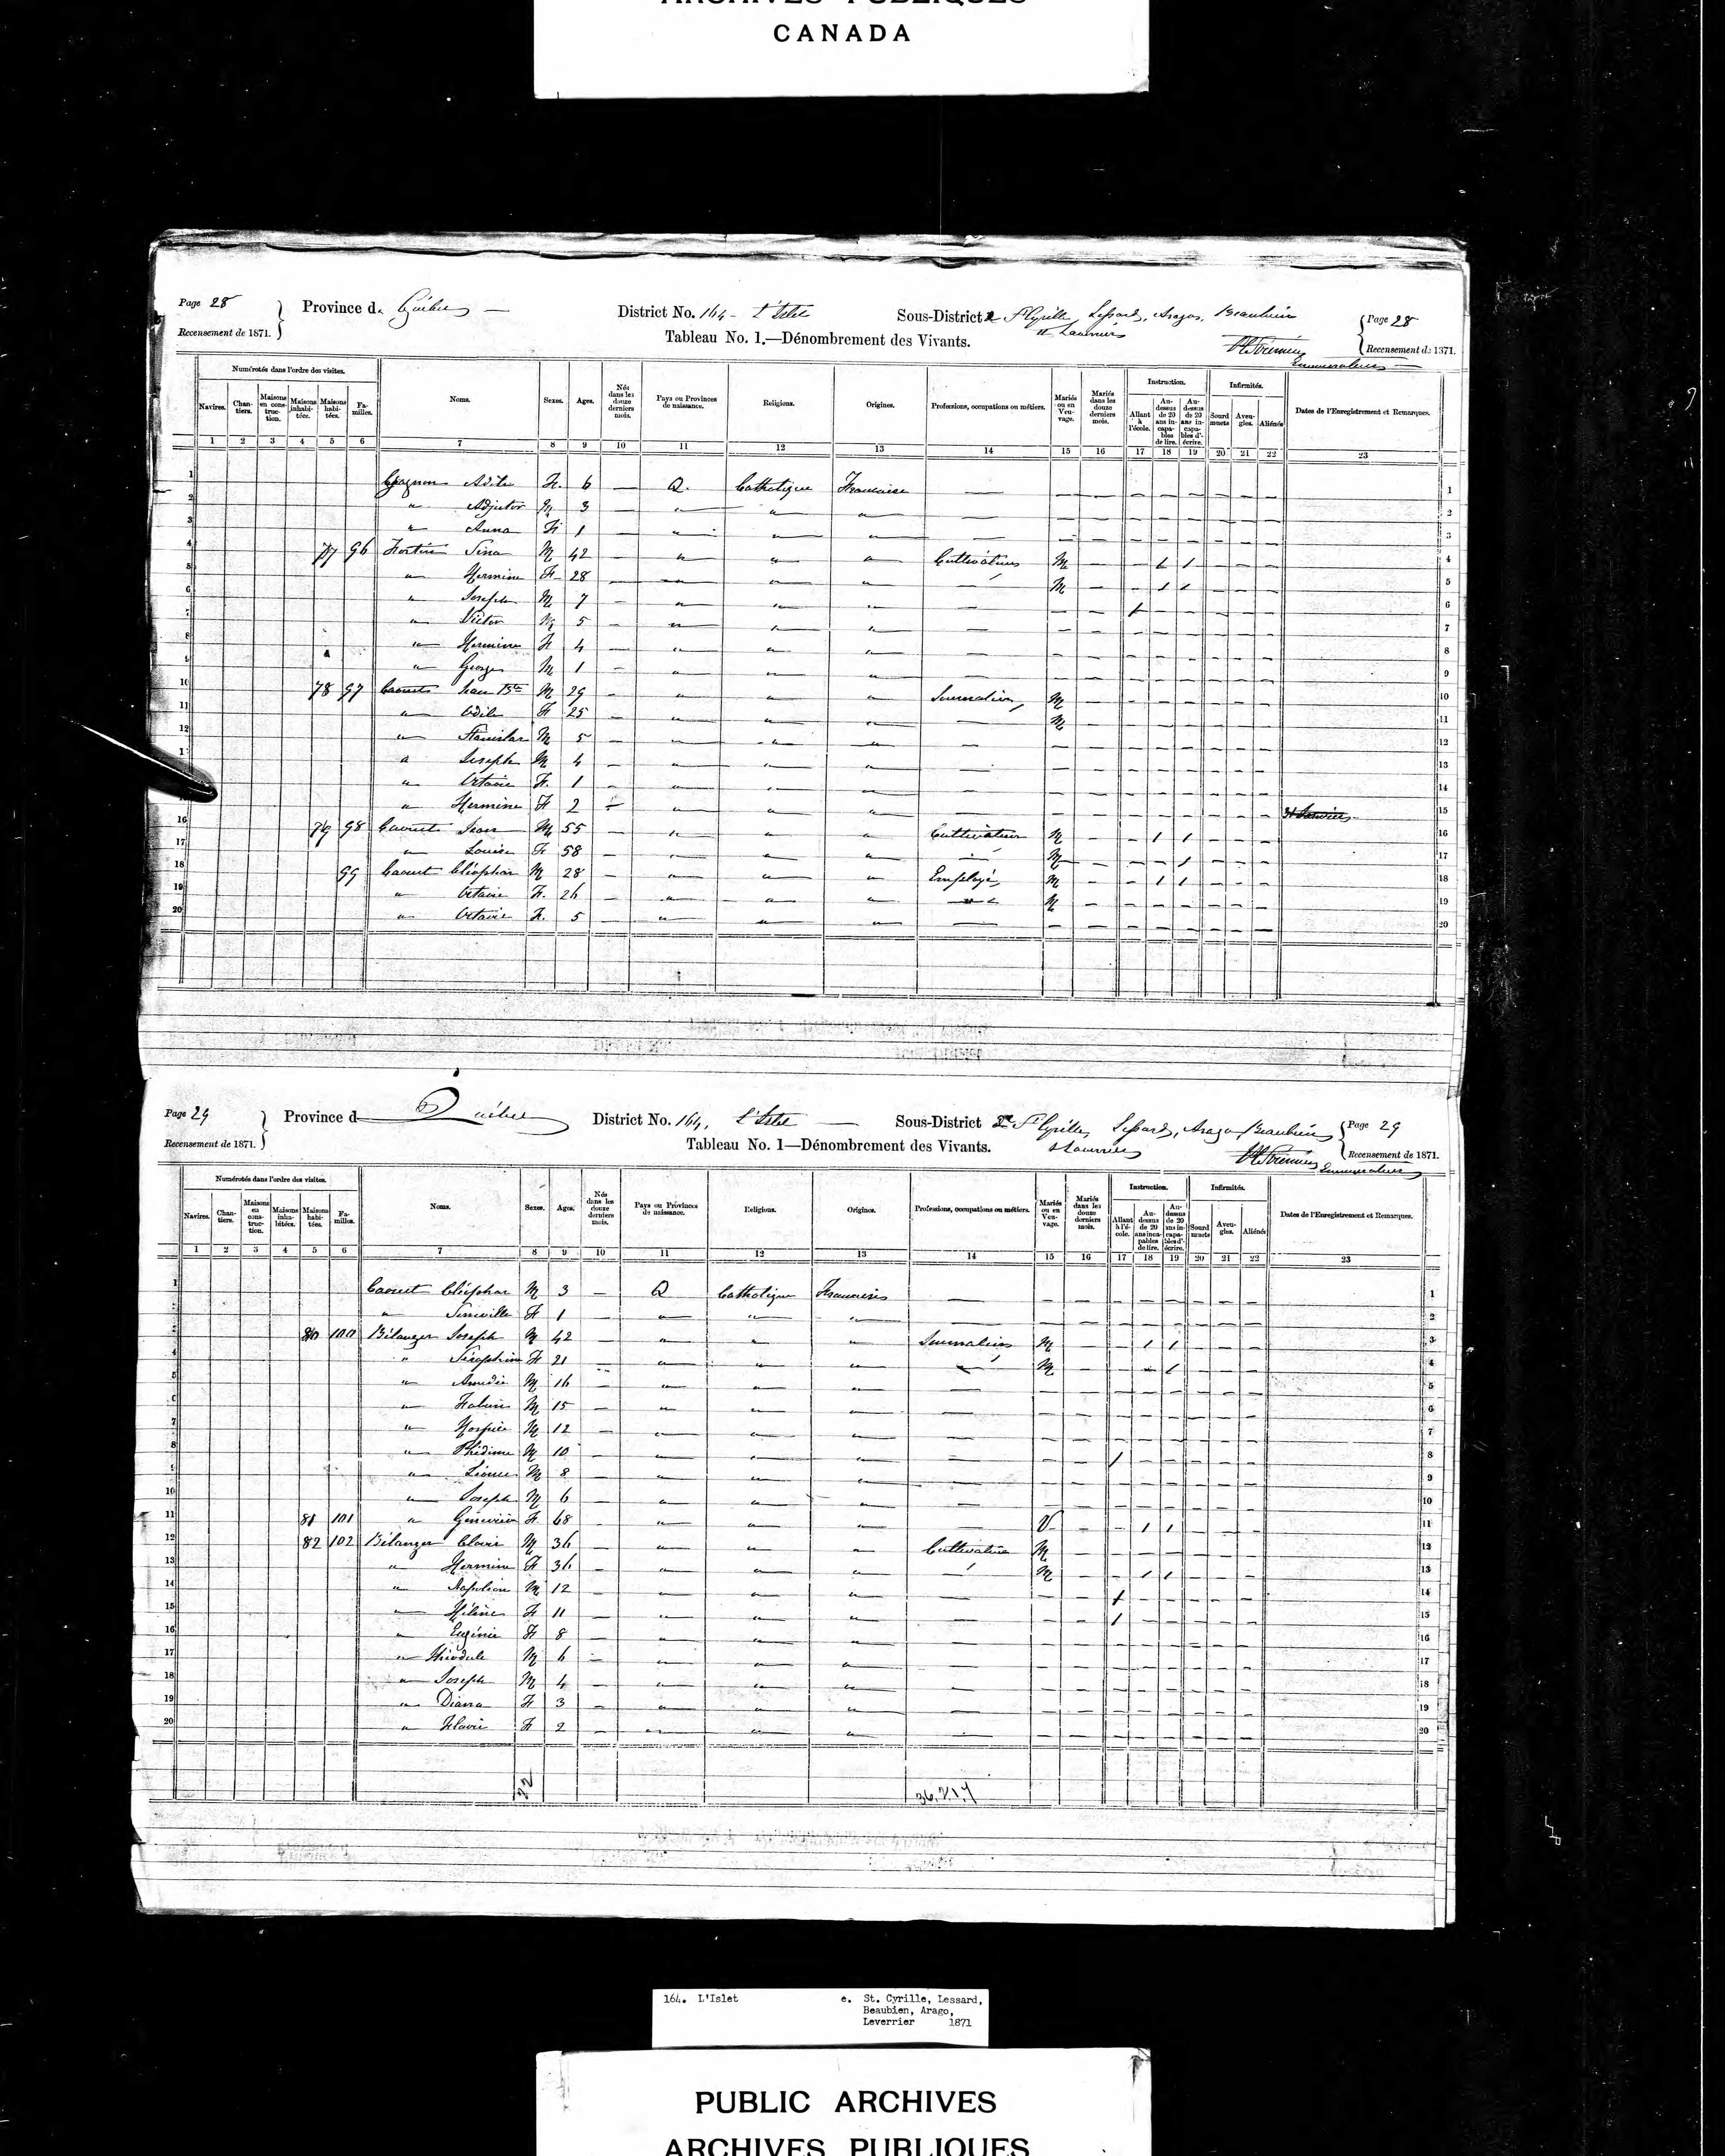 ARCHIVES PUBLIQUES
CANADA
Page 28
Province de Québec
District No. 164 - L'Islet
Sous-District e St Cyrille, Lessard, Arago, Beaubien
Page 28
Recensement de 1871.
Tableau No. 1.—Dénombrement des Vivants.
Recensement de 1871.
Enumerateur
Numérotés dans l'ordre des visites.
Instruction. Infirmités.
Navires. Chantiers. Maisons en construction. Maisons inhabitée. Maisons habitées. Familles. Noms. Sexes. Ages. Nés dans les douze derniers mois. Pays ou Provinces de naissance. Religions. Origines. Professions, occupations ou métiers. Mariés ou en Veuvage. Mariés dans les douze derniers mois. Allant à l'école. Au-dessus de 20 ans incapables de lire. Au-dessus de 20 ans incapables d'écrire. Sourd muets Aveugles. Aliénés Dates de l'Enregistrement et Remarques.
1 2 3 4 5 6 7 8 9 10 11 12 13 14 15 16 17 18 19 20 21 22 23
1 Gagnon F. 6 — Q. Catholique Francaise — 1
2 " Adjutor M 3 — " " " — 2
3 " Anna F 1 — " " " — 3
4 77 96 Fortin M 42 — " " " Cultivateur M — — 1 1 4
5 " Hermine F 28 — " " " M — — 1 1 5
6 " Joseph M 7 — " " " — — — 1 6
7 " Victor M 5 — " " " — 7
8 " Hermine F 4 — " " " — 8
9 " George M 1 — " " " — 9
10 78 97 Caouet Jean Bte M 29 — " " " Journalier M 10
11 " Odile F 25 — " " " — M 11
12 " Stanislas M 5 — " " " — 12
" Joseph M 4 — " " " — 13
" Octavie F. 1 — " " " — 14
" Hermine F 2 — " " " — 15
16 79 98 Caouet Jean M 55 — " " " Cultivateur M — — 1 1 16
17 " Louise F 58 — " " " — M — — — 1 17
18 99 Caouet Cléophas M 28 — " " " Employé M — — 1 1 18
19 " Octavie F. 26 — " " " M 19
20 " Octavie F. 5 — " " " — 20
Page 29
Province d Québec
District No. 164, L'Islet
Sous-District e St Cyrille, Lessard, Arago, Beaubien
Page 29
Recensement de 1871.
Tableau No. 1—Dénombrement des Vivants.
Recensement de 1871.
Enumerateur
Numérotés dans l'ordre des visites.
Instruction. Infirmités.
Navires. Chantiers. Maisons en construction. Maisons inhabitées. Maisons habitées. Familles. Noms. Sexes. Ages. Nés dans les douze derniers mois. Pays ou Provinces de naissance. Religions. Origines. Professions, occupations ou métiers. Mariés ou en Veuvage. Mariés dans les douze derniers mois. Allant à l'école. Au-dessus de 20 ans incapables de lire. Au-dessus de 20 ans incapables d'écrire. Sourd muets Aveugles. Aliénés Dates de l'Enregistrement et Remarques.
1 2 3 4 5 6 7 8 9 10 11 12 13 14 15 16 17 18 19 20 21 22 23
1 Caouet Cléophas M 3 — Q Catholique — 1
" F 1 — " " " — 2
80 100 Bélanger Joseph M 42 — " " " Journalier M — — 1 1 3
4 " F 21 " " " M 4
5 " Amédée M 16 — " " " — 5
6 " M 15 — " " " — 6
7 " Hospice M 12 — " " " — 7
8 " Phidime M 10 — " " " — — — 1 8
9 " Léonce M 8 — " " " — 9
10 " Joseph M 6 — " " " — 10
11 81 101 " Geneviève F. 68 — " " " — V — — 1 1 11
12 82 102 Bélanger M 36 — " " " Cultivateur M 12
13 " Hermine F 36 — " " " M — — 1 1 13
14 " Napoléon M 12 — " " " — — — 1 14
15 " Hélène F 11 — " " " — — — 1 15
16 " Eugénie F 8 — " " " — 16
17 " Théodule M 6 — " " " — 17
18 " Joseph M 4 — " " " — 18
19 " Diana F 3 — " " " — 19
20 " Flavie F 2 — " " " — 20
164. L'Islet e. St. Cyrille, Lessard,
Beaubien, Arago,
Leverrier 1871
PUBLIC ARCHIVES
ARCHIVES PUBLIQUES